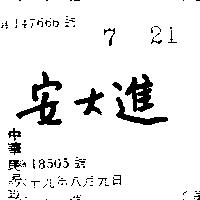 147666 號
7 21
安大進
中華民
18505 號
六十九年八月九日